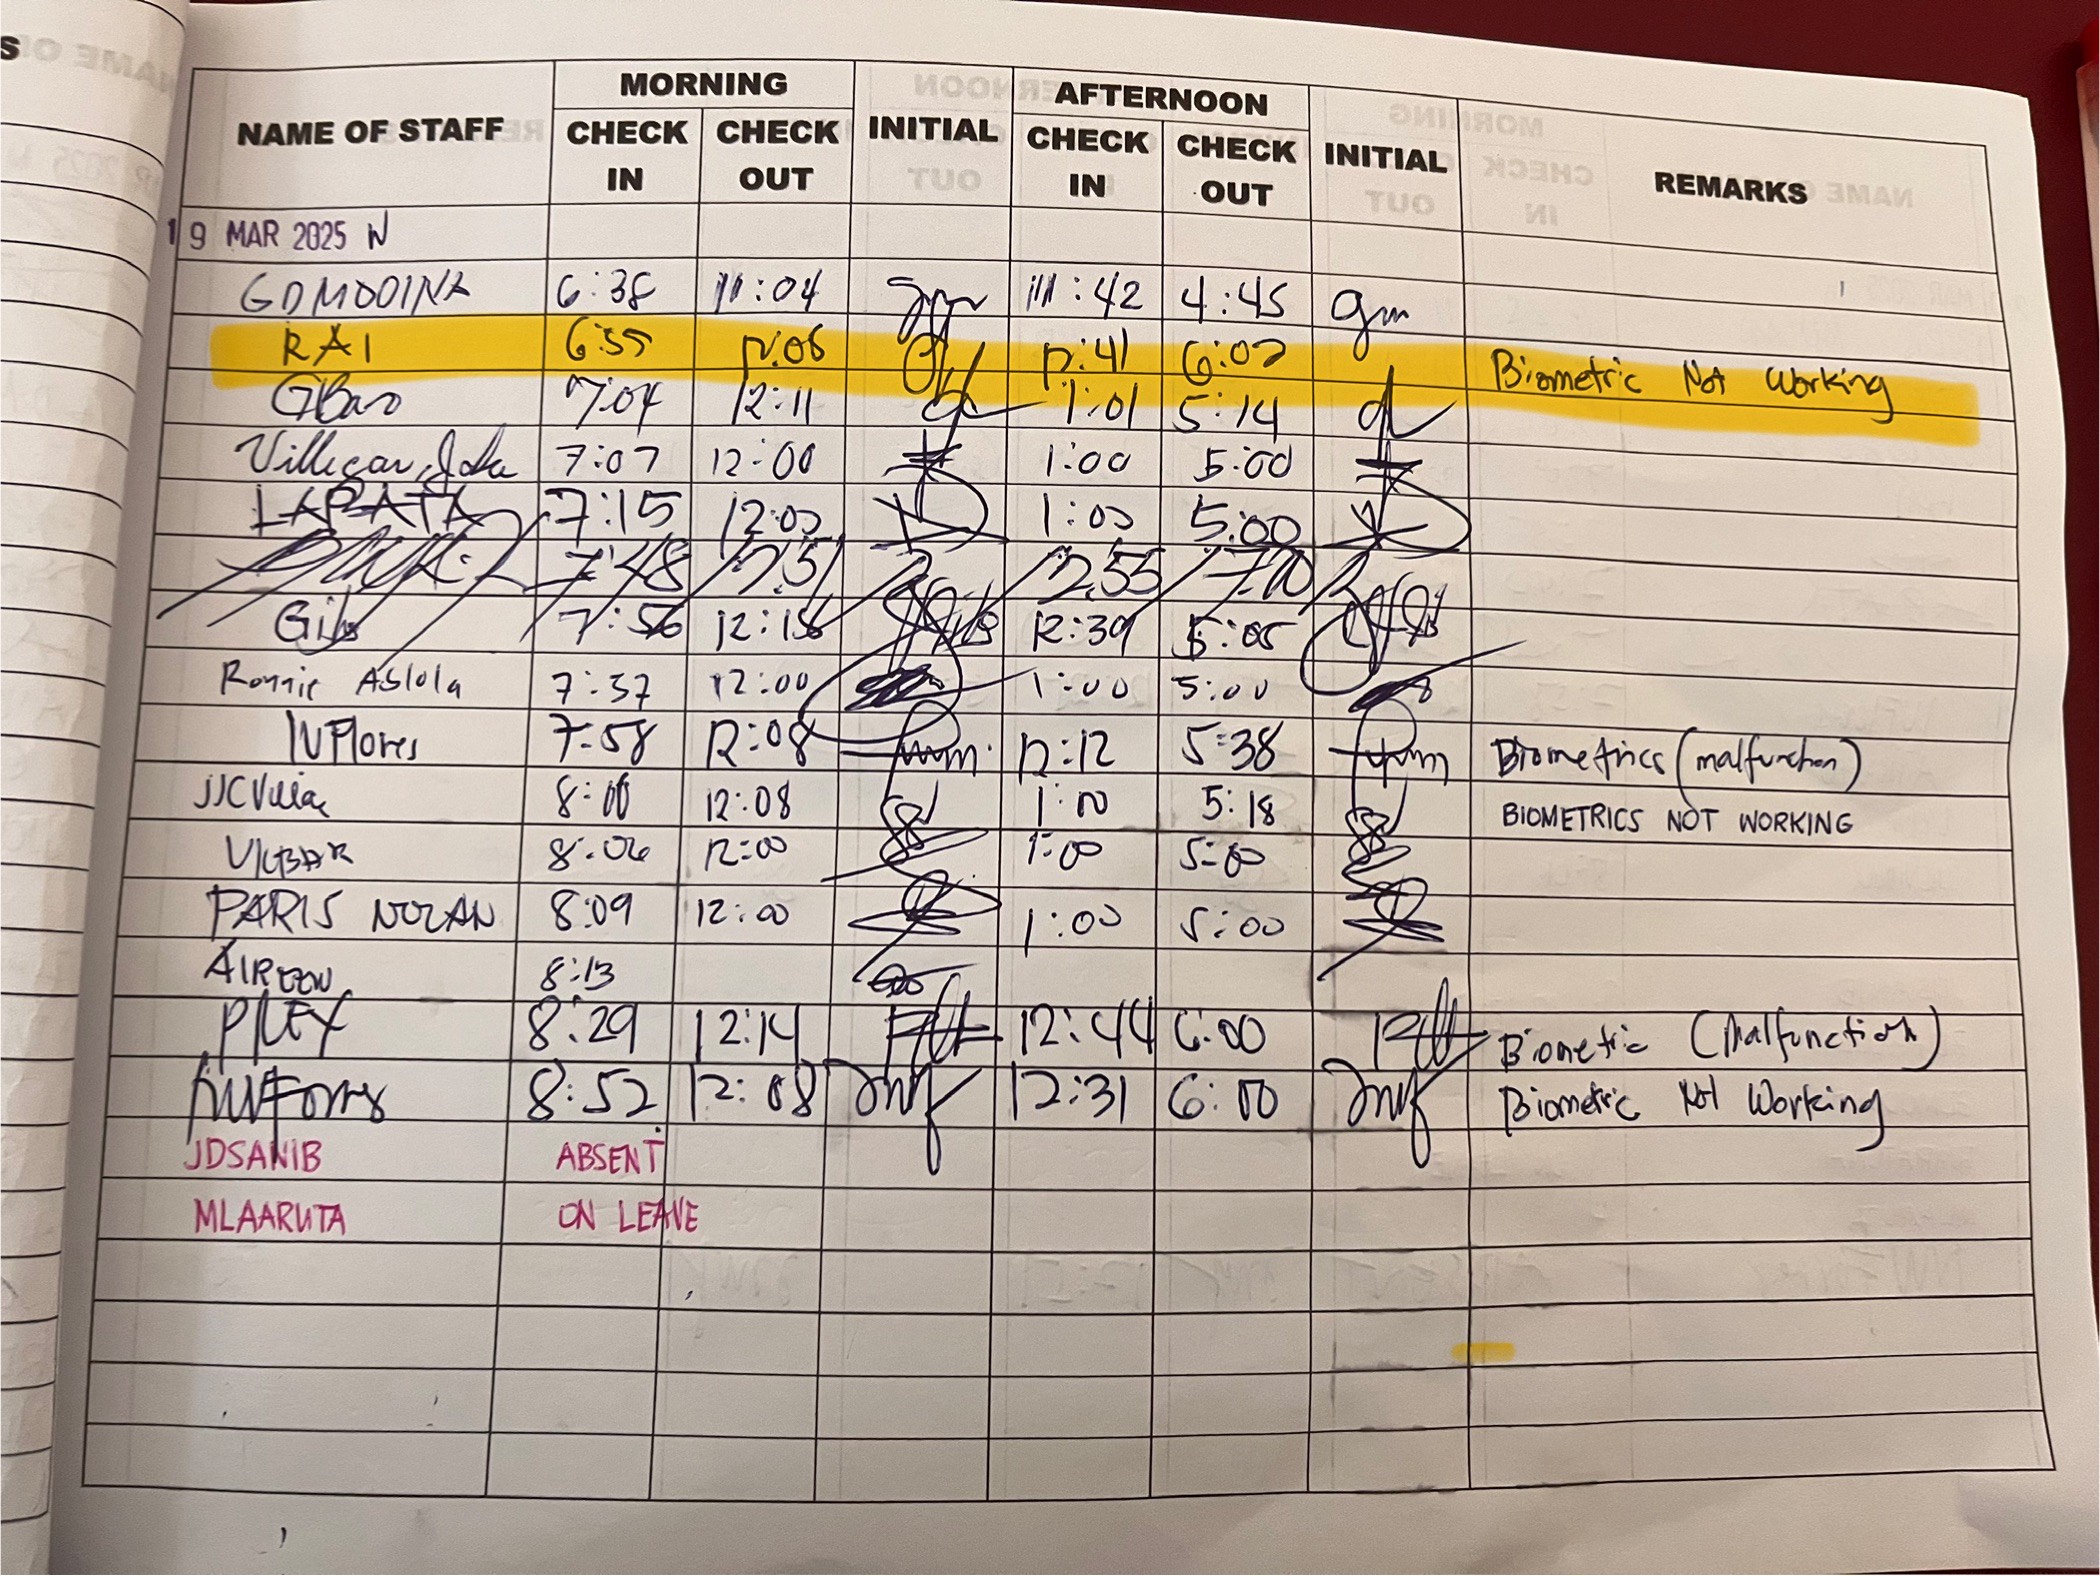 S
MORNING AFTERNOON
NAME OF STAFF CHECK IN CHECK OUT INITIAL CHECK IN CHECK OUT INITIAL REMARKS
19 MAR 2025 W
GDMODINA 6:38 11:04 gm 11:42 4:45 gm
RAI 6:55 12:06 12:41 6:02 Biometric Not Working
GBao 7:04 12:11 1:01 5:14
7:07 12:00 1:00 5:00
LAPATA 7:15 12:00 1:00 5:00
7:48 12:51 12:55
Gibs 7:56 12:15 12:39 5:05
Ronnie Ablola 7:37 12:00 1:00 5:00
IVFlores 7:58 12:08 12:12 5:38 Biometrics (malfunction)
JJCVillar 8:00 12:08 1:00 5:18 BIOMETRICS NOT WORKING
8:06 12:00 1:00 5:00
PARIS NOLAN 8:09 12:00 1:00 5:00
AIREEN 8:13
PLEY 8:29 12:14 12:44 6:00 Biometric (Malfunction)
8:52 12:08 12:31 6:00 Biometric Not Working
JDSANIB ABSENT
MLAARUTA ON LEAVE